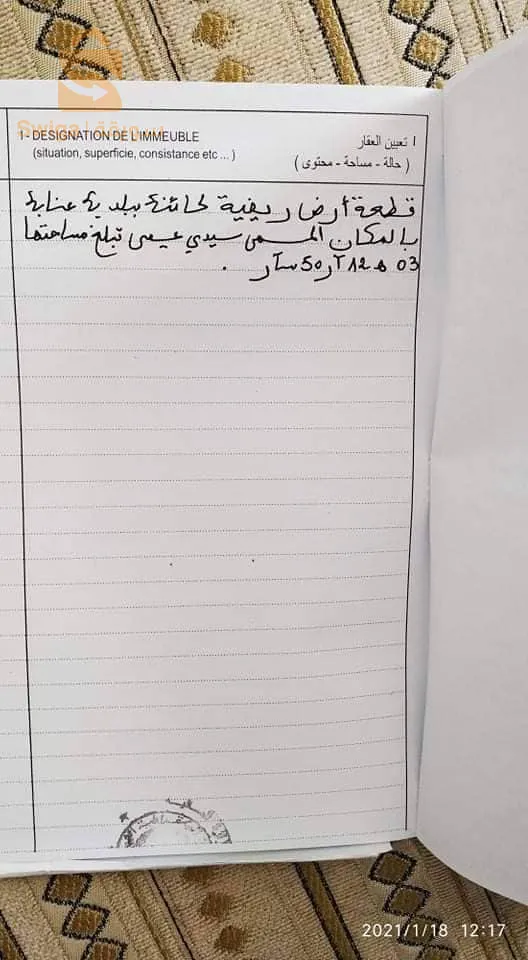 سويقة | Swiga
1- DESIGNATION DE L'IMMEUBLE
(situation, superficie, consistance etc ... )
I تعيين العقار
( حالة - مساحة - محتوى )
قطعة أرض ريفية كائنة ببلدية عنابة
بالمكان المسمى سيدي عيسى تبلغ مساحتها
03 ه 12 آر 50 سآر .
2021/1/18 12:17